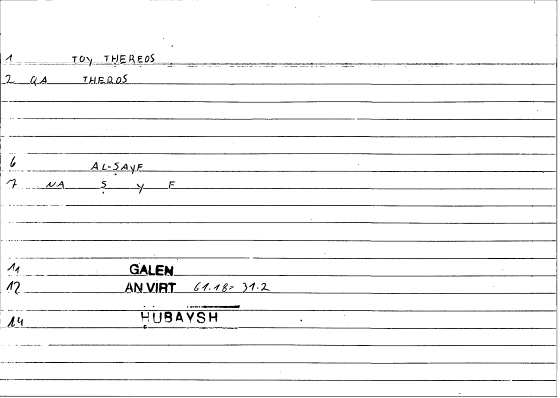 1 TOY THEREOS
2 QA THEROS
6 AL-SAYF
7 NA S Y F
11 GALEN
12 AN VIRT 61.18= 31.2
14 HUBAYSH